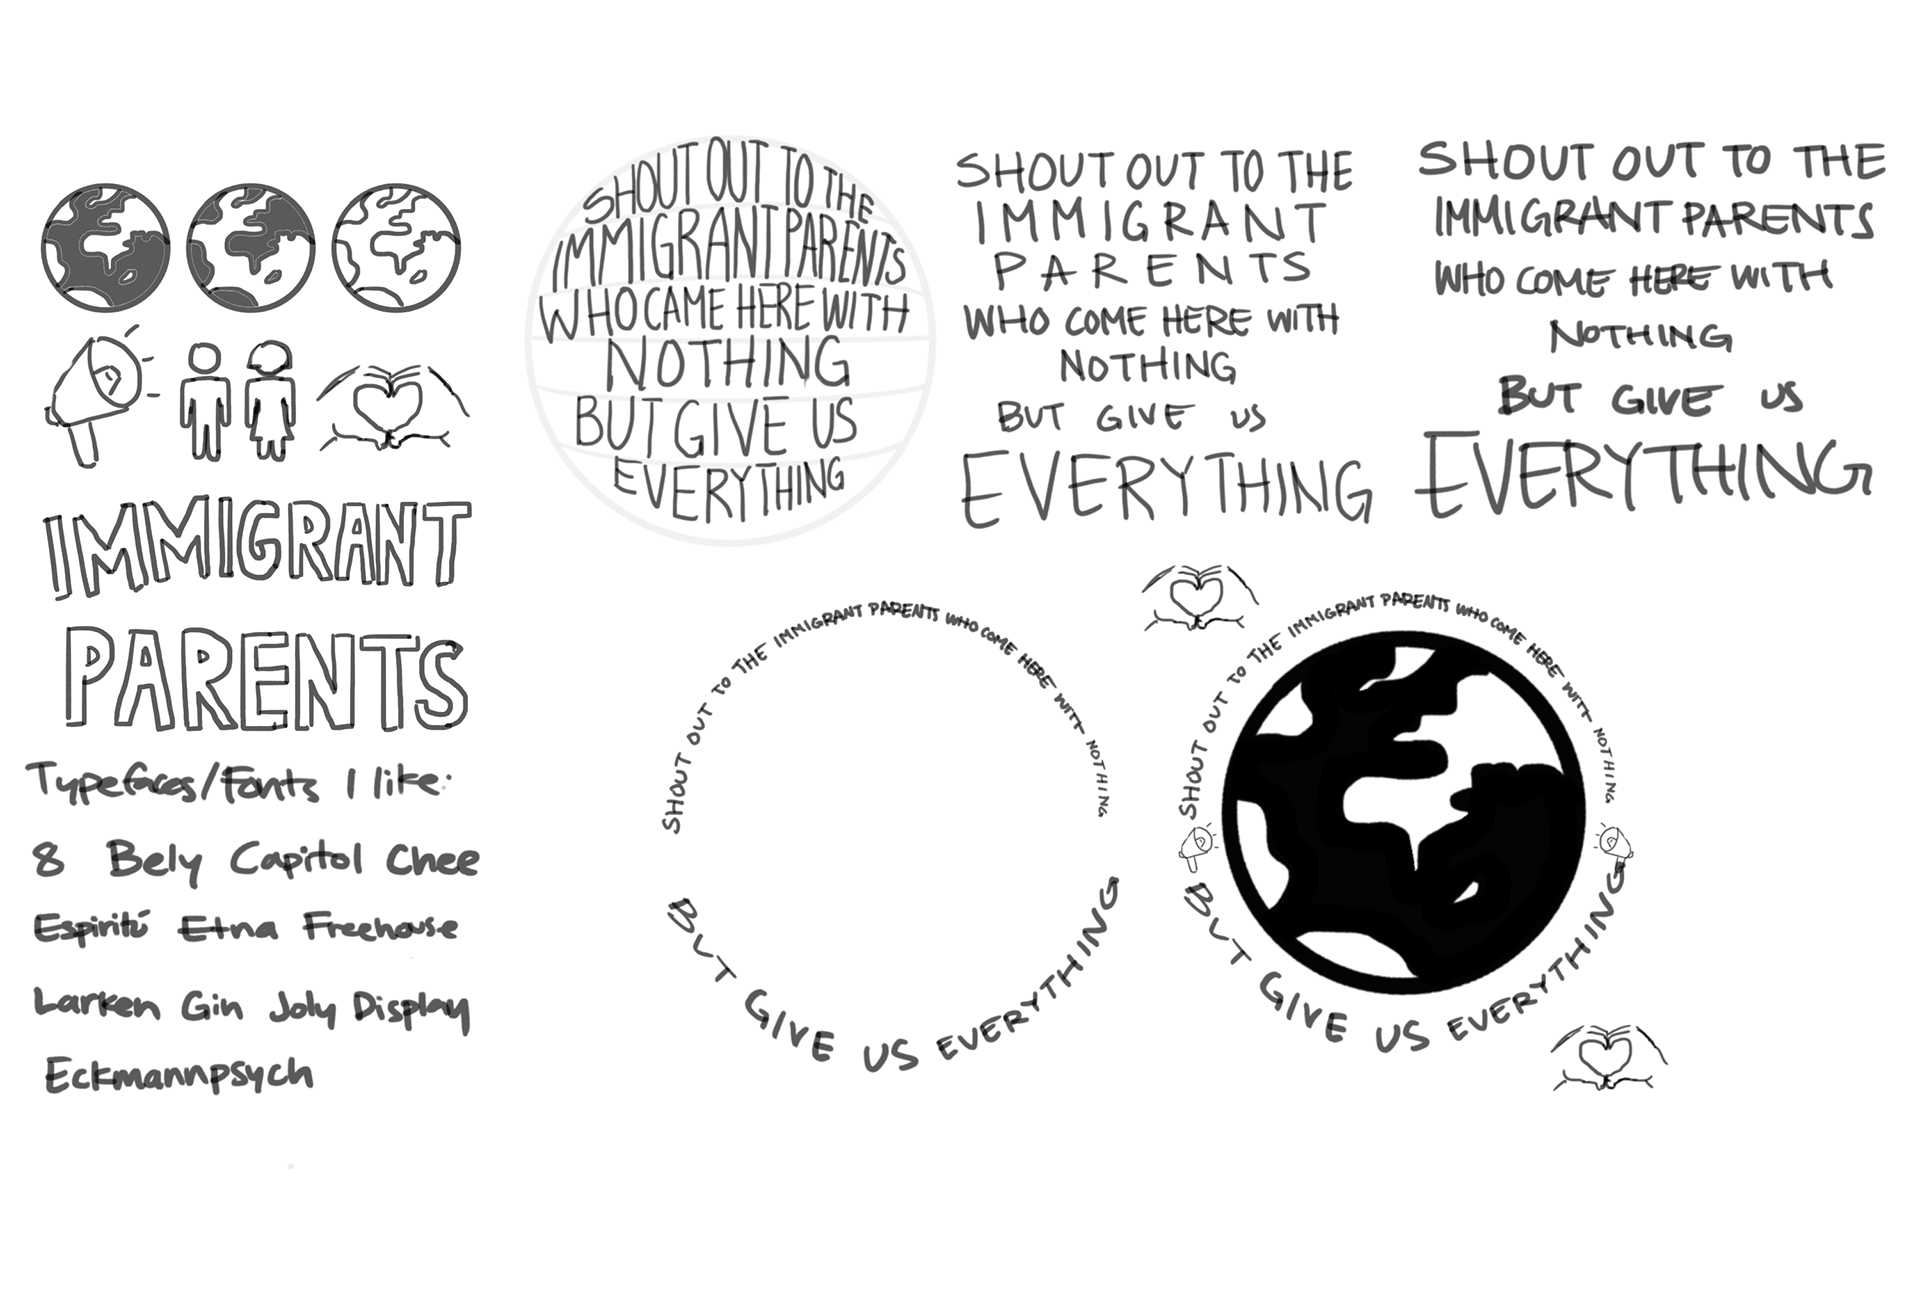 IMMIGRANT
PARENTS
Typefaces/Fonts I like:
8 Bely Capitol Chee
Espiritú Etna Freehouse
Larken Gin Joly Display
Eckmannpsych
SHOUT OUT TO THE
IMMIGRANT PARENTS
WHO CAME HERE WITH
NOTHING
BUT GIVE US
EVERYTHING
SHOUT OUT TO THE
IMMIGRANT
PARENTS
WHO COME HERE WITH
NOTHING
BUT GIVE US
EVERYTHING
SHOUT OUT TO THE
IMMIGRANT PARENTS
WHO COME HERE WITH
NOTHING
BUT GIVE US
EVERYTHING
SHOUT OUT TO THE IMMIGRANT PARENTS WHO COME HERE WITH NOTHING
BUT GIVE US EVERYTHING
SHOUT OUT TO THE IMMIGRANT PARENTS WHO COME HERE WITH NOTHING
BUT GIVE US EVERYTHING